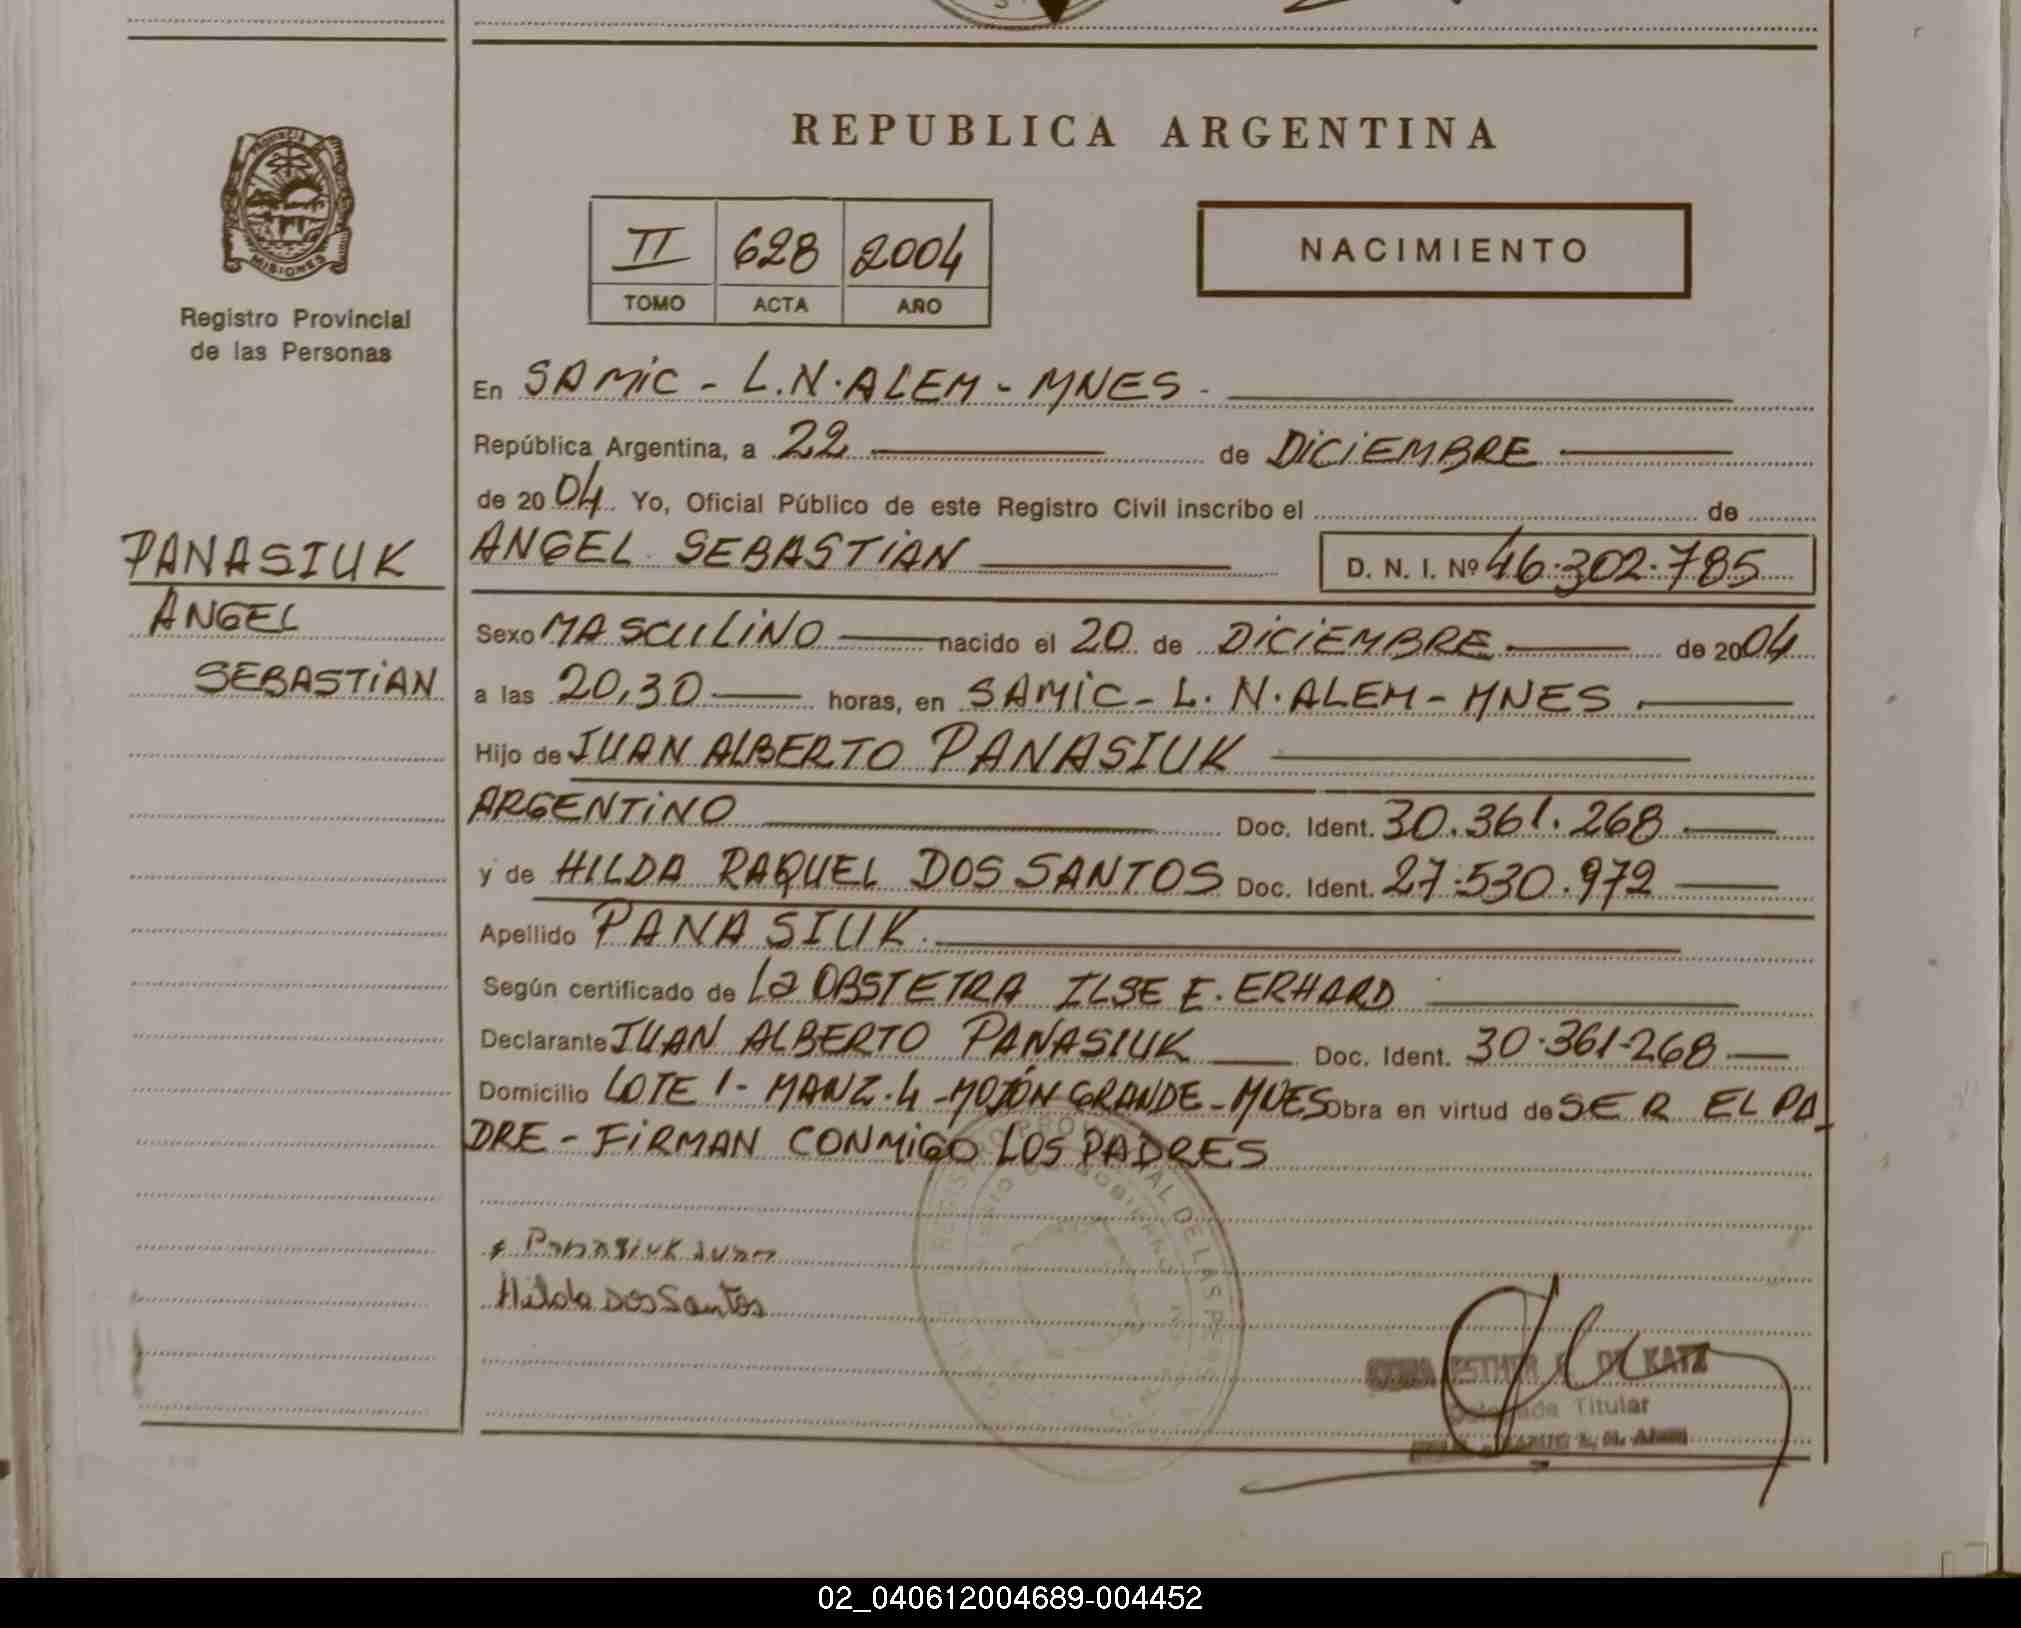 REPUBLICA ARGENTINA
PROVINCIA
MISIONES
Registro Provincial
de las Personas
II 628 2004
TOMO ACTA AÑO
NACIMIENTO
En SAMIC - L.N. ALEM - MNES -
República Argentina, a 22 de DICIEMBRE
de 2004 Yo, Oficial Público de este Registro Civil inscribo el de
PANASIUK
ANGEL
SEBASTIAN
ANGEL SEBASTIAN D. N. I. Nº 46.302.785
Sexo MASCULINO nacido el 20 de DICIEMBRE de 2004
a las 20,30 horas, en SAMIC - L. N. ALEM - MNES
Hijo de JUAN ALBERTO PANASIUK
ARGENTINO Doc. Ident. 30.361.268
y de HILDA RAQUEL DOS SANTOS Doc. Ident. 27.530.972
Apellido PANASIUK.
Según certificado de La OBSTETRA ILSE E. ERHARD
Declarante JUAN ALBERTO PANASIUK Doc. Ident. 30.361.268
Domicilio LOTE 1 - MANZ. 4 - MOJÓN GRANDE - MNES Obra en virtud de SER EL PA
DRE - FIRMAN CONMIGO LOS PADRES
Panasiuk Juan
Hilda Dos Santos
ESTHER DE KATZ
Delegada Titular
L. N. Alem
02_040612004689-004452